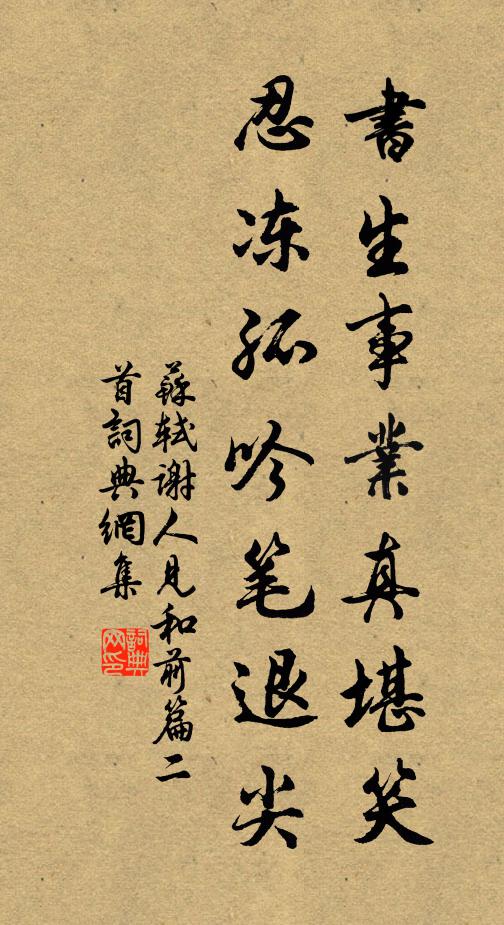 書生事業真堪笑
忍冻孤吟笔退尖
蘇轼謝人見和前篇二
首詞典網集
詞典
网印